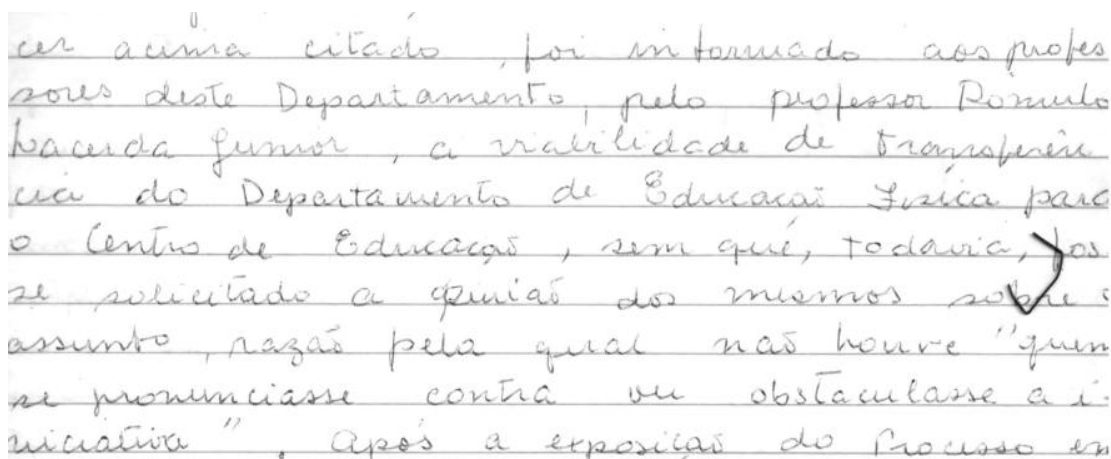 cer acima citado, foi informado aos profes
sores deste Departamento, pelo professor Rômulo
Lacerda Junior, a viabilidade de transferên
cia do Departamento de Educação Física para
o Centro de Educação, sem que, todavia, fos
se solicitado a opinião dos mesmos sobre o
assunto, razão pela qual não houve "quem
se pronunciasse contra ou obstaculasse a i-
niciativa". Após a exposição do Processo em